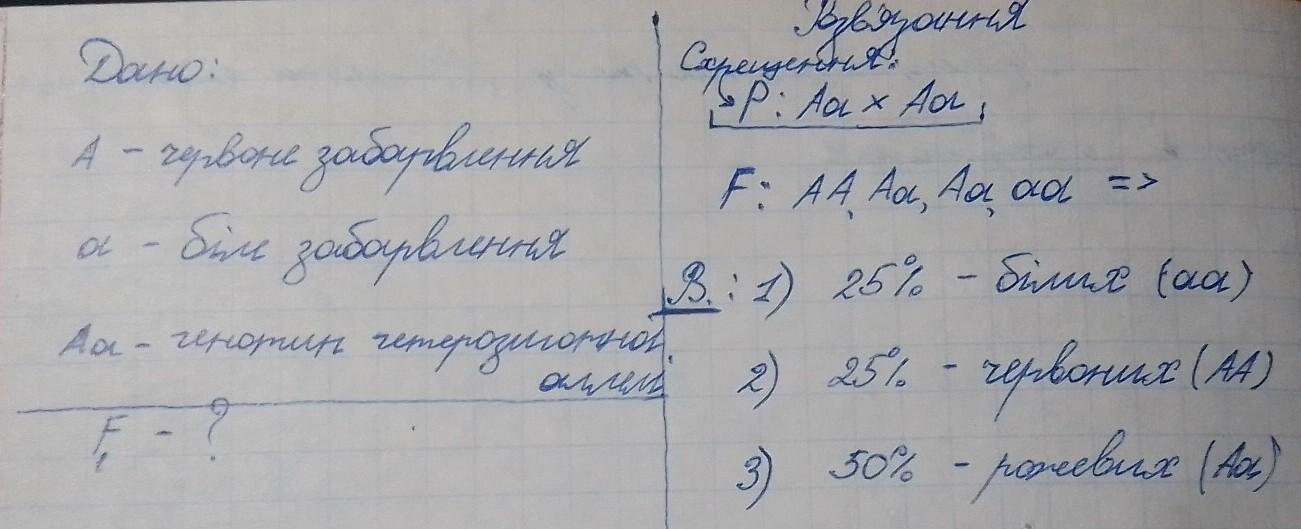 Дано:
А - червоне забарвлення
а - біле забарвлення
Аа - генотип гетерозиготної
алелі
F₁ - ?
Розв'язання
Схрещення:
Р: Аа × Аа
F: АА, Аа, Аа, аа =>
В.: 1) 25% - білих (аа)
2) 25% - червоних (АА)
3) 50% - рожевих (Аа)